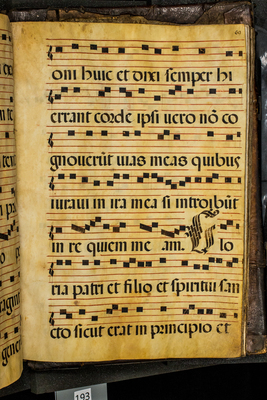 60
oni huic et dixi semper hi
errant corde ipsi uero nō co
gnouerūt uias meas quibus
iuraui in ira mea si introibūt
in re quiem me am. Glo
ria patri et filio et spiritui san
cto sicut erat in principio et
193